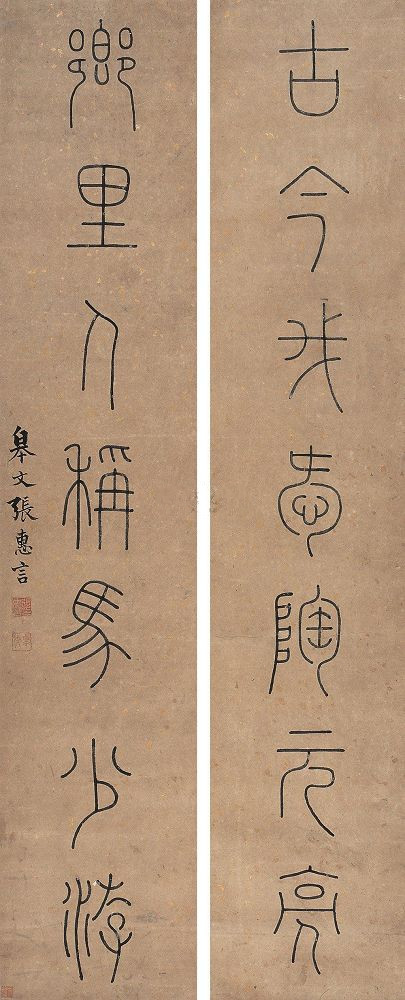 古今我愛陶元亮
鄉里人稱馬少游
皋文張惠言